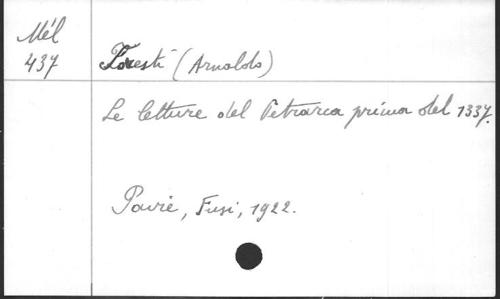 Mél
437
Foresti (Arnaldo)
Le letture del Petrarca prima del 1337.
Pavie, Fusi, 1922.